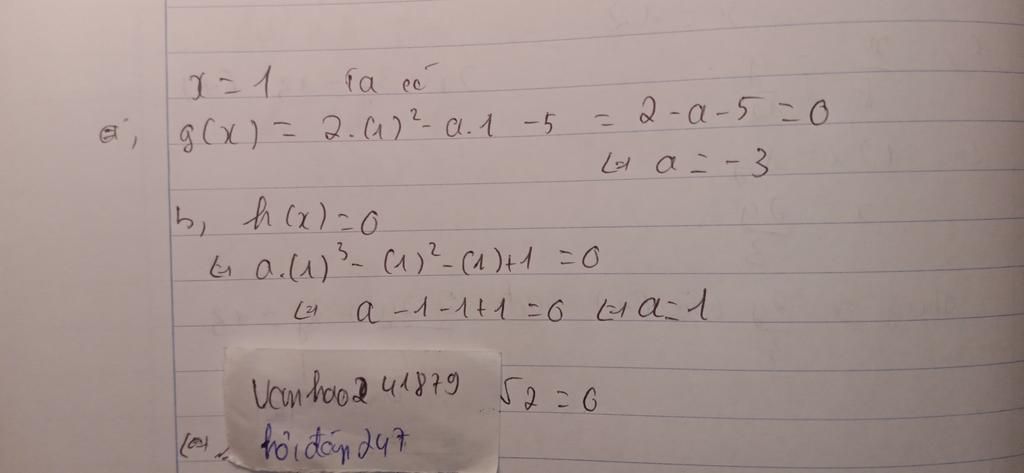 x = 1 Ta có
a, g(x) = 2.(1)² - a.1 - 5 = 2 - a - 5 = 0
⇔ a = -3
b, h(x) = 0
⇔ a.(1)³ - (1)² - (1) + 1 = 0
⇔ a - 1 - 1 + 1 = 0 ⇔ a = 1
√2 = 0
Vanhao241879
⇔
hỏi đáp 247